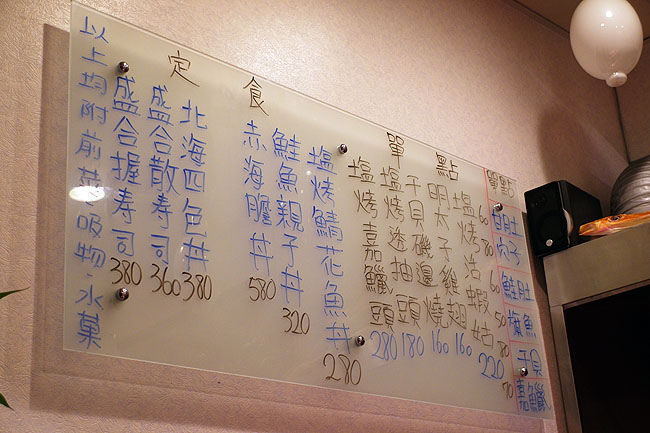 單點
鮭肚 60
旗魚 50
干貝 80
嘉鱲 70
單點
塩烤活蝦姑 220
明太子雞翅 160
干貝磯邊燒 160
塩烤透抽頭 180
塩烤嘉鱲頭 280
定食
塩烤鯖花魚丼 280
鮭魚親子丼 320
赤海膽丼 580
北海四色丼 380
盛合散壽司 360
盛合握壽司 380
以上均附前菜、吸物、水菓